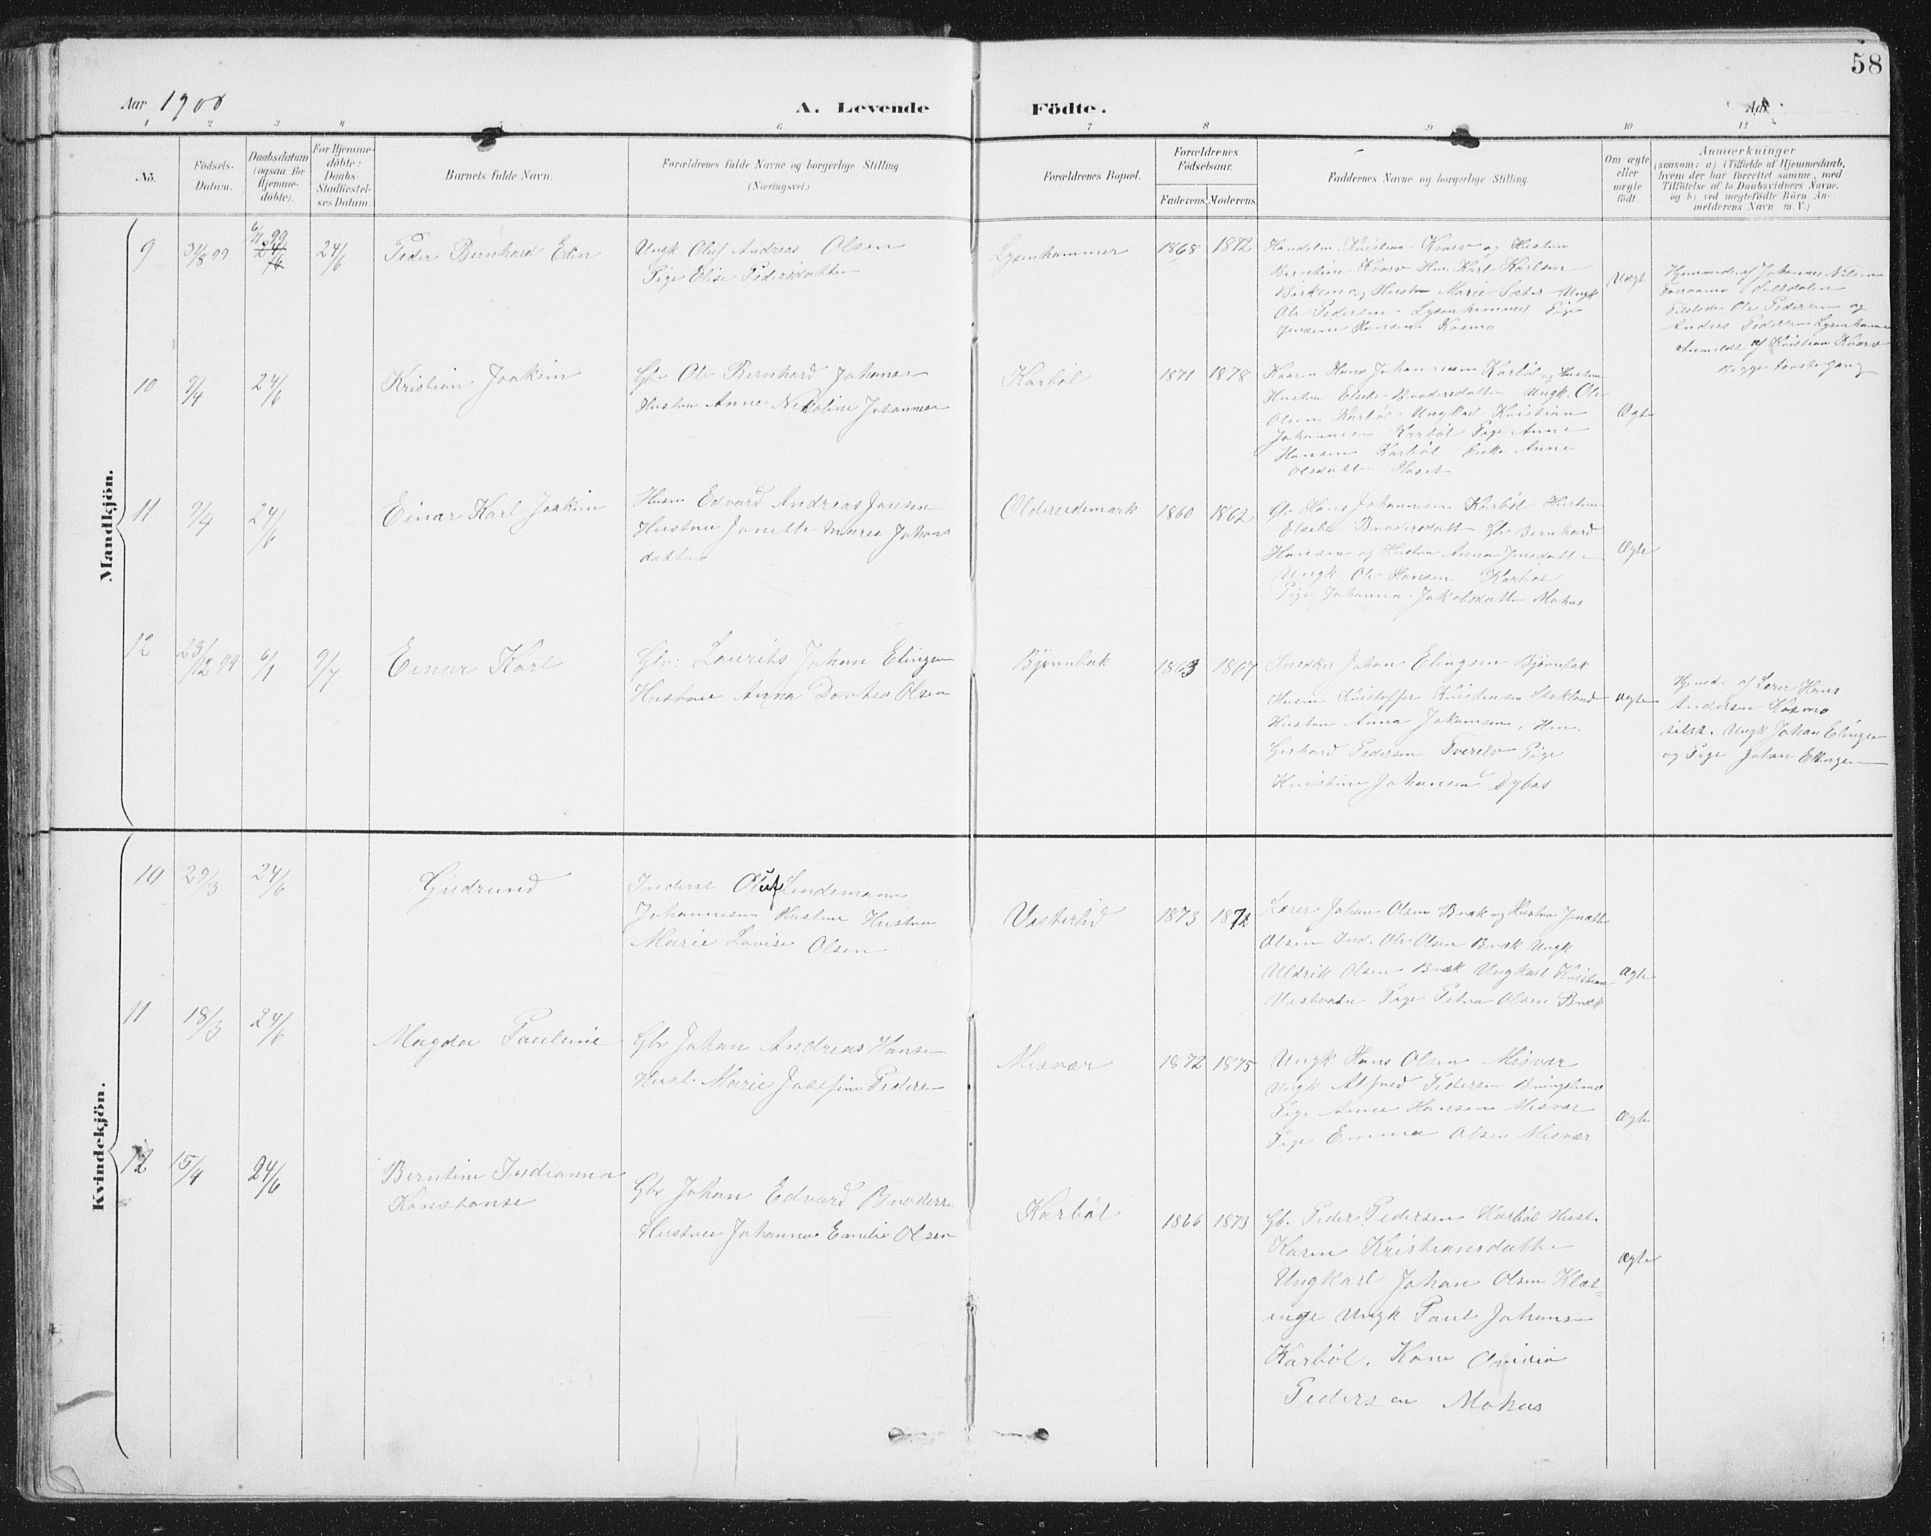 58
Aar 1900
A. Levende Födte.
Aar
1 2 3 4 5 6 7 8 9 10 11
No.
Födsels-Datum.
Daabsdatum (ogsaa for Hjemmedöbte).
For Hjemmedöbte: Daabs-Stadfæstelses Datum.
Barnets fulde Navn.
Forældrenes fulde Navne og borgerlige Stilling (Næringsvei.)
Forældrenes Bopæl.
Forældrenes Födselsaar.
Faderens. Moderens.
Faddernes Navne og borgerlige Stilling.
Om ægte eller uægte födt.
Anmærkninger
(saasom: a) i Tilfælde af Hjemmedaab, hvem der har forrettet samme, med Tilföielse af to Daabsvidners Navne. og b) ved uegtefödte Börn Anmelderens Navn m. V.;
Mandkjön.
9 31/8 99 6/11 99 24/6 24/6
Peder Bernhard Edin
Ungk Oluf Andreas Olsen
Pige Elise Pedersdatter
Lysenhammer 1868 1872
Handelsm. Kristian Kvarv og Hustru
Berntine Kvarv Hm. Karl Karlsen
og Hustru Marie Ungk
Ole Pedersen Lysenhammer Pige
Hansen Kosmo
Uægt
Hjemmed. af Johannes Nilsen
Saltdalen
Ole Pedersen og
Anders Pedersen Lysenhammer
Anmeldt af Kristian Kvarv
Begge første gang
10 9/4 24/6
Kristian Joakim
Gbr Ole Bernhard Johansen
Hustru Anne Nikoline Johannesen
Karbøl 1871 1878
Hans Johannesen Karbøl og Hustru
Hustru Elsebe Brodersdatter Ungk. Ole
Olsen Karbøl Ungkarl Kristian
Johannesen Karbøl Pige Anne
Hansen Karbøl Enke Anne
Olsdatter
Ægte
11 9/4 24/6
Einar Karl Joakim
Husm Edvard Andreas Jansen
Hustru Janette Maria Johansdatter
Oldereidemark 1860 1862
Gbr Hans Johannesen Karbøl Hustru
Elsebe Brodersdatter Gbr Bernhard
Hansen og Hustru Anna Jensdatter
Ungk Ole Hansen Karbøl
Pige Johanna Jakobsdatter Mohus
Ægte
12 23/12 99 6/1 9/7
Einar Karl
Gbr. Laurits Johan Elingsen
Hustru Anna Dorthea Olsen
Bjørnbak 1863 1867
Snedker Johan Elingsen Bjørnbak
Husm Kristoffer Kristensen Stokland
Hustru Anna Johansen, Hm.
Gerhard Pedersen Tverelv Pige
Kristine Johansen Dybos
ægte
Hjemmed. af Lærer Hans
Andersen Kosmo
tilst. Ungk Johan Elingsen
og Pige Johan Elingsen
Kvindekjön.
10 29/3 24/6
Gudrund
Inderst Oluf Lindemann
Johannesen Hustru Hustru
Marie Lovise Olsen
Vesterlid 1873 1872
Lærer Johan Olsen Bræk og Hustru
Olsen Ind. Ole Olsen Bræk Ungk
Uldrik Olsen Bræk Ungkarl Kristian
Pige Petra Olsen Bræk
Ægte
11 18/3 24/6
Magda Pauline
Gbr Johan Andreas Hansen
Hust. Marie Josefine Pedersen
Misvær 1872 1875
Ungk Hans Olsen Misvær
Ungk Alfred Pedersen
Pige Anna Hansen Misvær
Pige Emma Olsen Misvær
Ægte
12 15/4 24/6
Berntine Indianna
Konstanse
Gbr Johan Edvard Brodersen
Hustru Johanna Emilie Olsen
Karbøl 1866 1873
Gb. Peder Pedersen Karbøl Hust.
Karen Kristiansdatter
Ungkarl Johan Olsen Klæt-
inge Ungk Paul Johansen
Karbøl. Kone
Pedersen Mohus
Ægte